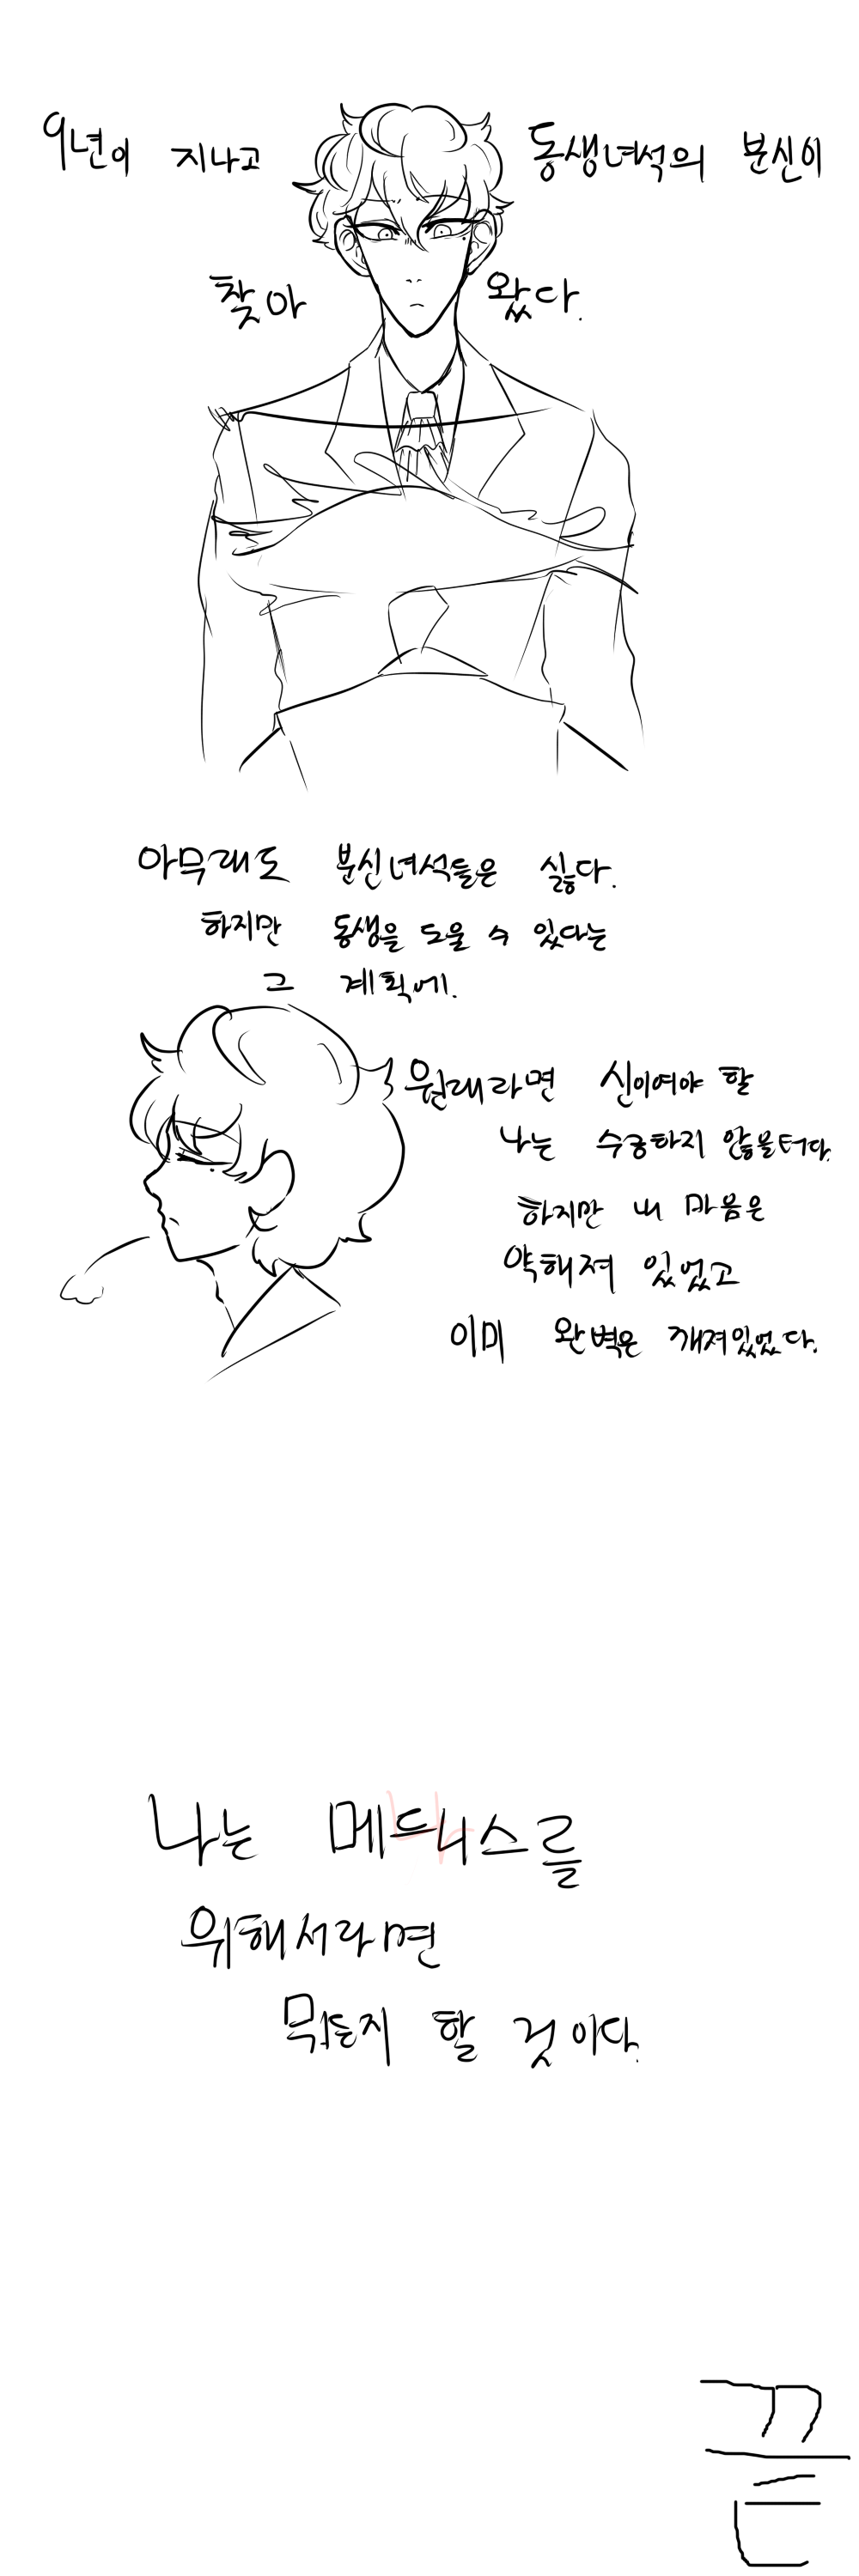 9년이 지나고 동생녀석의 분신이
찾아 왔다.
아무래도 분신녀석들은 싫다.
하지만 동생을 도울 수 있다는
그 계획에.
원래라면 신이여야 할
나는 수긍하지 않을터다.
하지만 내 마음은
약해져 있었고
이미 완벽은 깨져있었다.
나는 메드니스를
위해서라면
뭐든지 할 것이다.
끝